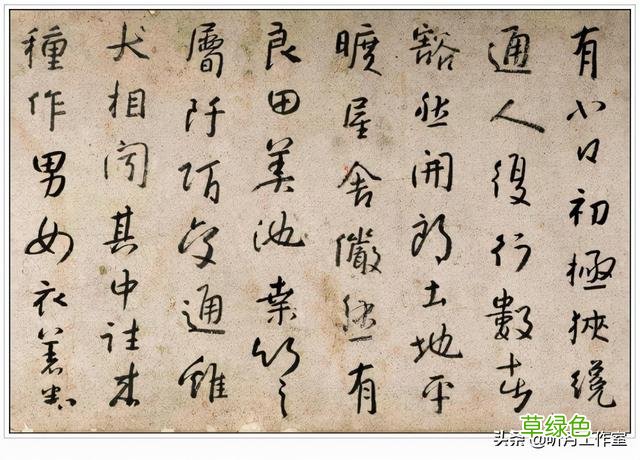 有小口初極狹纔
通人復行數十步
豁然開朗土地平
曠屋舍儼然有
良田美池桑竹之
屬阡陌交通雞
犬相聞其中往來
種作男女衣著悉
草绿色
头条 工作室